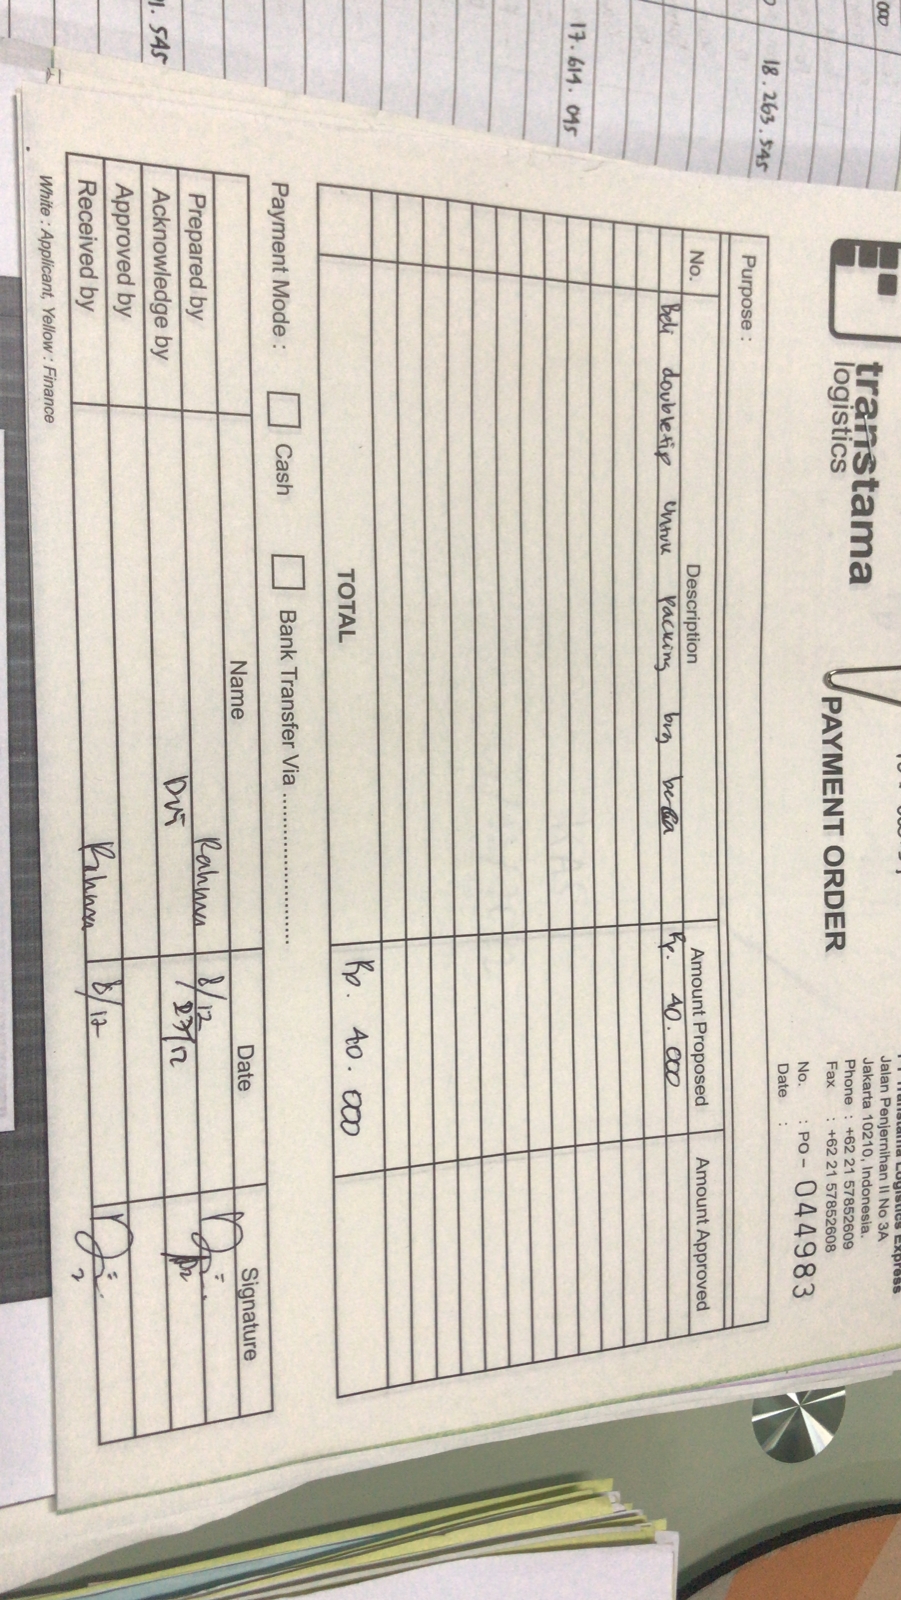 18.263.545
17.614.045
1.545
000
transtama
logistics
PAYMENT ORDER
Transtama Logistics Express
Jalan Penjernihan II No 3A
Jakarta 10210, Indonesia.
Phone : +62 21 57852609
Fax : +62 21 57852608
No. : PO - 044983
Date :
Purpose :
No. Description Amount Proposed Amount Approved
Beli doubletip untuk packing brg Rp. 40.000
TOTAL Rp. 40.000
Payment Mode : Cash Bank Transfer Via ........................
Name Date Signature
Prepared by Rahma 8/12
Acknowledge by Dvi 23/12
Approved by
Received by Rahma 8/12
White : Applicant, Yellow : Finance